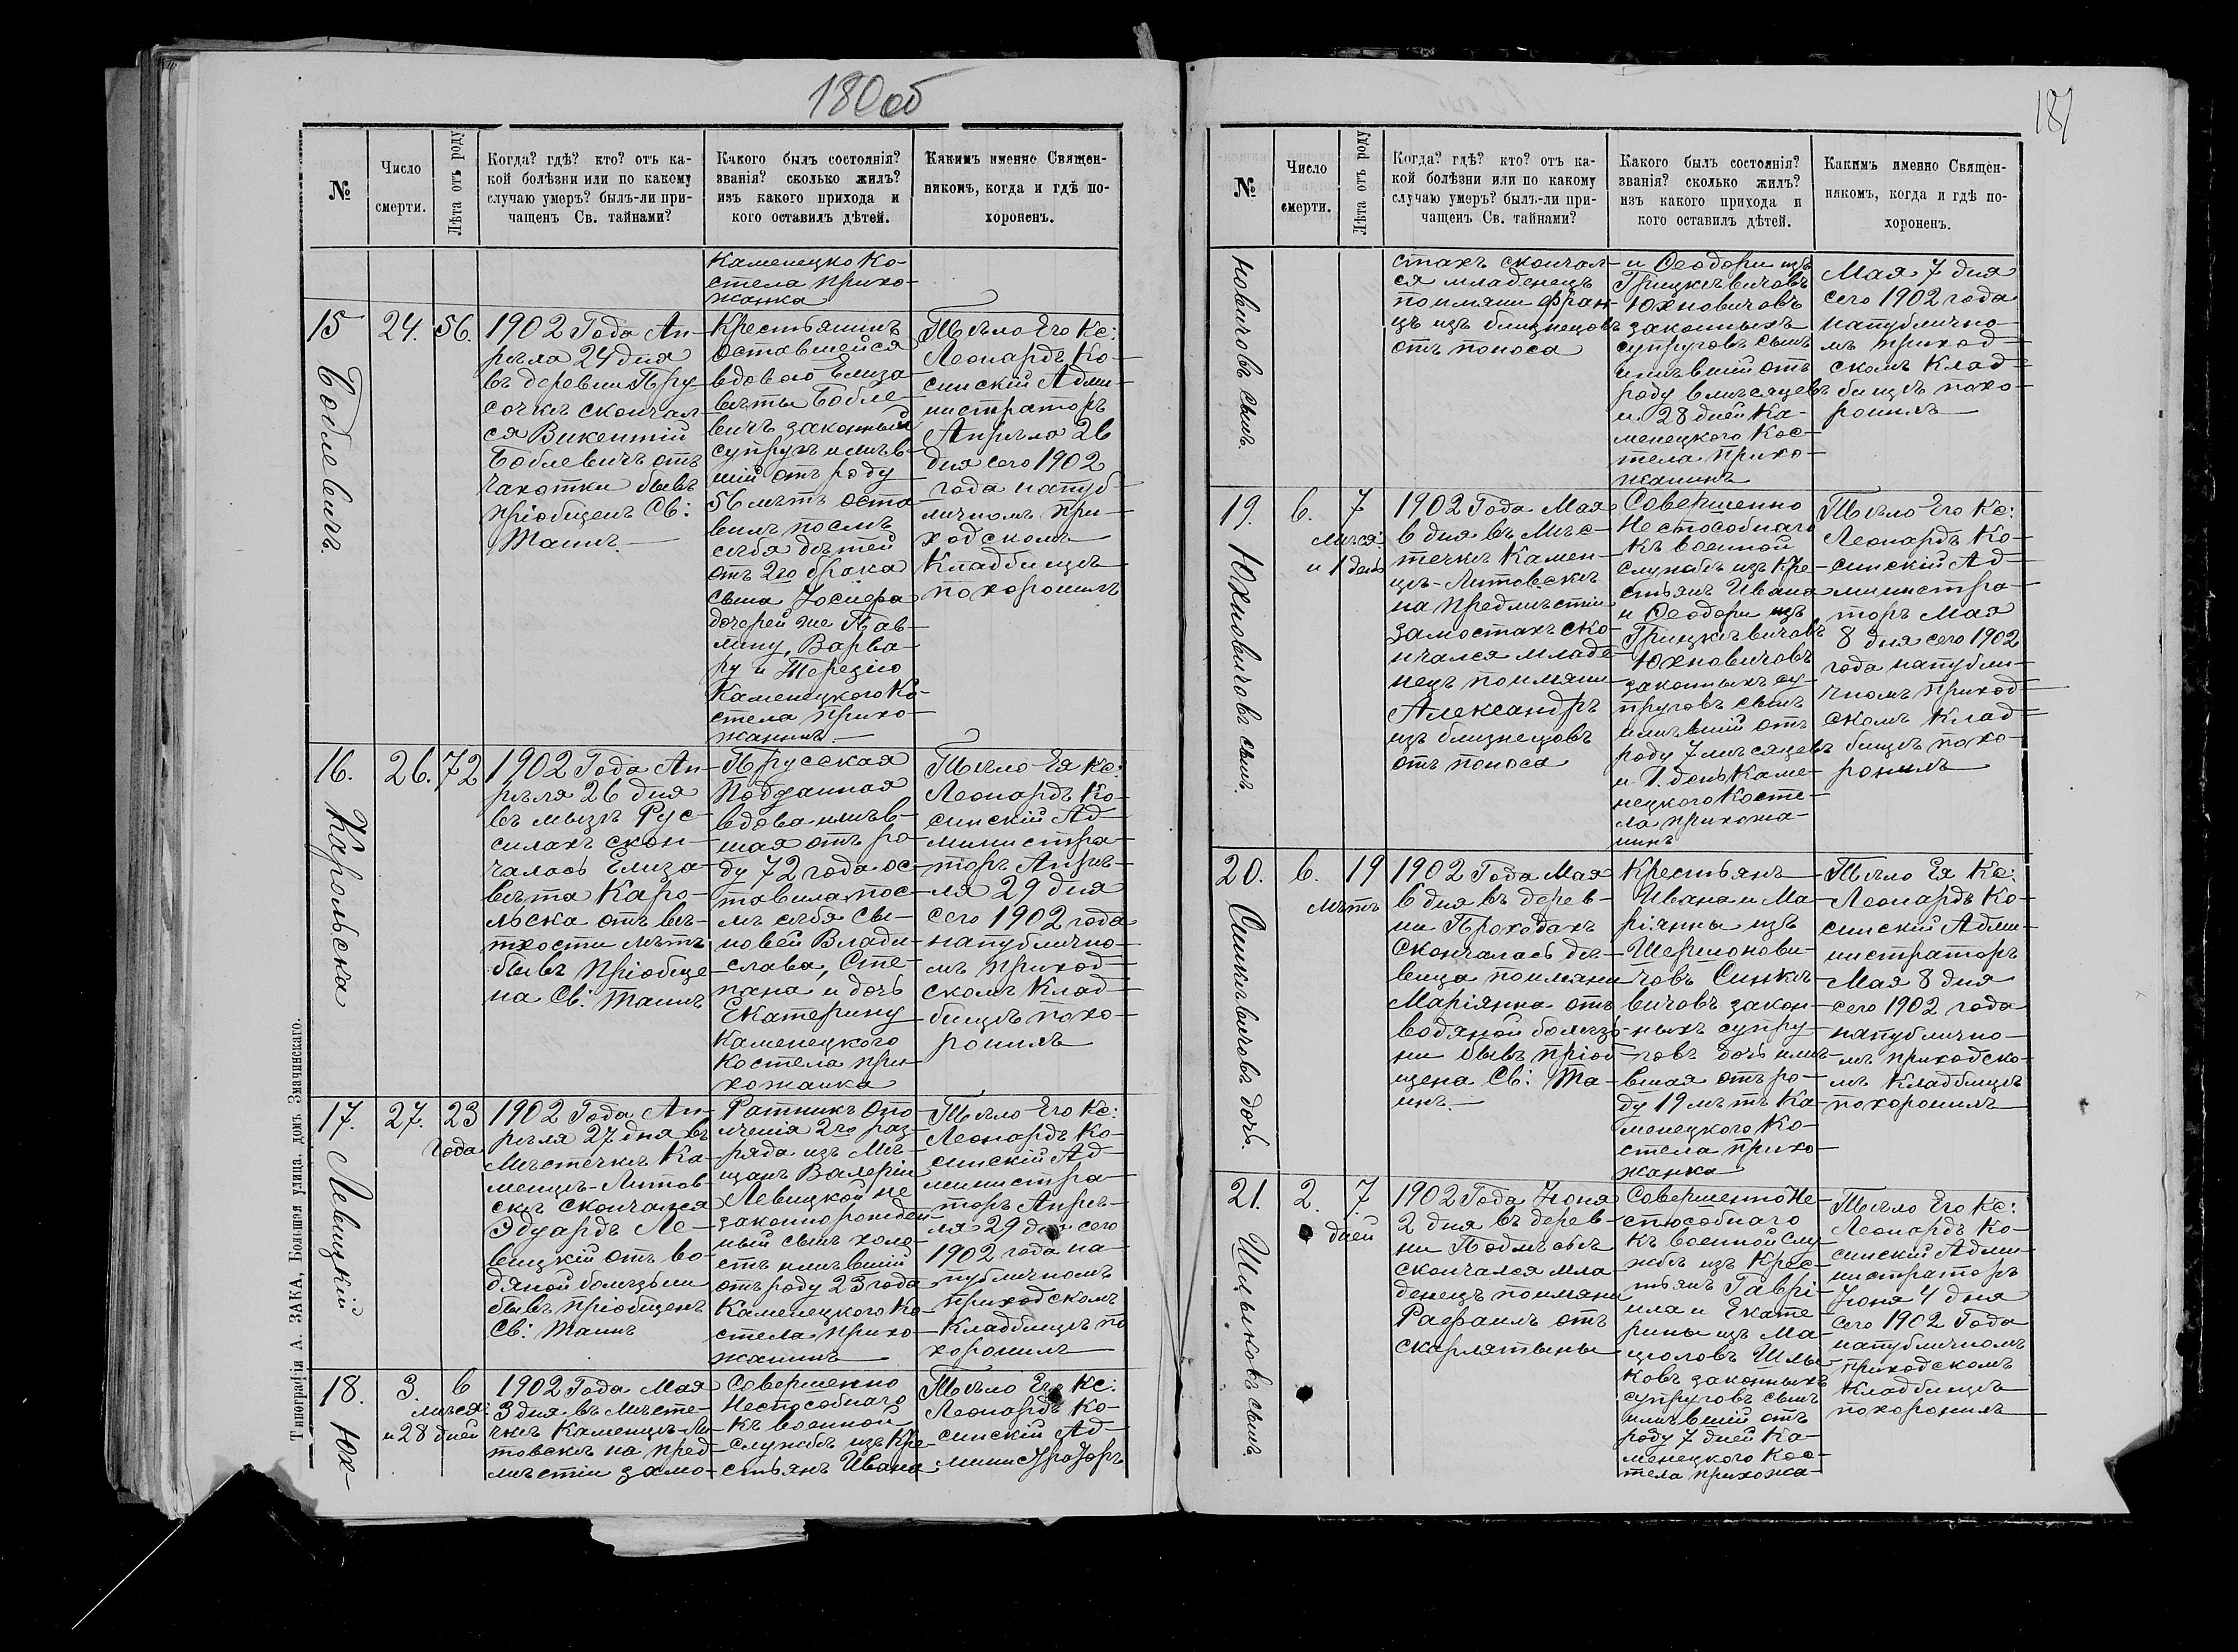 180об
№
Число
смерти.
Лѣта отъ роду
Когда? гдѣ? кто? отъ ка-
кой болѣзни или по какому
случаю умеръ? былъ-ли при-
чащенъ Св. тайнами?
Какого былъ состоянія?
званія? сколько жилъ?
изъ какого прихода и
кого оставилъ дѣтей.
Какимъ именно Священ-
никомъ, когда и гдѣ по-
хороненъ.
Каменецко Ко-
стела прихо-
жанка
15
Боблевичъ.
24.
56.
1902 Года Ап-
рѣля 24 дня
въ деревни Пру-
сочкѣ скончал-
ся Викентій
Боблевичъ отъ
чахотки бывъ
пріобщенъ Св:
Таинъ.
Крестьянинъ
оставшейся
вдовою Елиза-
веты Бобле-
вичъ законный
супругъ имѣв-
шій отъ роду
56 лѣтъ оста
вилъ послѣ
себя дѣтей
отъ 2го брака
сына Іосифа
дочерей же Пав-
лину, Варва-
ру и Терезію
Каменецкого Ко-
стела прихо-
жанинъ.
Тѣло Его Кс:
Леонардъ Ко-
синскій Адми-
нистраторъ
Апрѣля 26
дня сего 1902
года напуб-
личномъ при-
ходскомъ
Кладбищѣ
похоронилъ
16.
Карольска
26.
72
1902 Года Ап-
рѣля 26 дня
въ мызѣ Рус-
силахъ скон-
чалась Елиза-
вѣта Каро-
льска отъ вѣ-
тхости лѣтъ
бывъ пріобще-
на Св: Таинъ
Прусская
Подданная
вдова имѣв-
шая отъ ро-
ду 72 года ос-
тавила пос-
лѣ себя сы-
новей Влади-
слава, Сте-
пана и дочь
Екатерину
Каменецкого
Костела при-
хожанка
Тѣло Ея Кс:
Леонардъ Ко-
синскій Ад-
министра-
торъ Апрѣ-
ля 29 дня
сего 1902 года
напублично-
мъ приход-
скомъ Клад-
бищѣ похо-
ронилъ
17.
Левицкій
27.
23
года
1902 Года Ап-
рѣля 27 дня въ
Мѣстечкѣ Ка-
менцѣ-Литов-
скѣ скончался
Эдуардъ Ле-
вицкій отъ во-
дяной болѣзни
бывъ пріобщенъ
Св: Таинъ
Ратникъ опо
лченія 2го раз-
ряда изъ Мѣ-
щанъ Валеріи
Левицкой не
законнорожден-
ный сынъ холо-
стъ имѣвшій
отъ роду 23 года
Каменецкого Ко-
стела прихо-
жанинъ
Тѣло Его Кс:
Леонардъ Ко-
синскій Ад-
министра-
торъ Апрѣ-
ля 29 дня сего
1902 года на-
публичномъ
приходскомъ
Кладбищѣ по
хоронилъ
18.
Юх-
3.
6
мѣся:
и 28 дней
1902 Года Мая
3 дня въ Мѣсте-
чкѣ Каменцѣ-Ли
товскѣ на пред-
мѣстіи замо-
Совершенно
Неспособнаго
къ военной
службѣ изъ Кре-
стьянъ Ивана
Тѣло Его Кс:
Леонардъ Ко-
синскій Ад-
министраторъ
Типографія А. ЗАКА, Большая улица, домъ Змачинскаго.
181
№
Число
смерти.
Лѣта отъ роду
Когда? гдѣ? кто? отъ ка-
кой болѣзни или по какому
случаю умеръ? былъ-ли при-
чащенъ Св. тайнами?
Какого былъ состоянія?
званія? сколько жилъ?
изъ какого прихода и
кого оставилъ дѣтей.
Какимъ именно Священ-
никомъ, когда и гдѣ по-
хороненъ.
новичовъ сынъ.
стахъ скончал-
ся младенецъ
поимяни Фран-
цъ изъ близнецовъ
отъ поноса
и Ѳеодори изъ
Грицкѣвичовъ
Юхновичовъ
законныхъ
супруговъ сынъ
имѣвшій отъ
роду 6 мѣсяцевъ
и 28 дней Ка-
менецкого Кос-
тела прихо-
жанинъ
Мая 7 дня
сего 1902 года
напублично-
мъ приход-
скомъ Клад-
бищѣ похо-
ронилъ
19.
Юхновичовъ сынъ.
6.
7
мѣся:
и 1 день
1902 Года Мая
6 дня въ Мѣс-
течкѣ Камен-
цѣ-Литовскѣ
на предмѣстіи
Замостахъ ско-
нчался младе-
нецъ поимяни
Александръ
изъ близнецовъ
отъ поноса
Совершенно
Неспособнаго
къ военной
службѣ изъ Кре-
стьянъ Ивана
и Ѳеодори изъ
Грицкѣвичовъ
Юхновичовъ
законныхъ су-
пруговъ сынъ
имѣвшій отъ
роду 7 мѣсяцевъ
и 1 день Каме-
нецкого Косте-
ла прихожа-
нинъ
Тѣло Его Кс:
Леонардъ Ко-
синскій Ад-
министра-
торъ Мая
8 дня сего 1902
года напубли-
чномъ приход-
скомъ Клад-
бищѣ похо-
ронилъ
20.
Синкѣвичовъ дочь.
6.
19
лѣтъ
1902 Года Мая
6 дня въ дерев-
ни Проходахъ
скончалась дѣ-
вица поимяни
Маріянна отъ
водяной болѣз-
ни бывъ пріоб-
щена Св: Та-
инъ.
Крестьянъ
Ивана и Ма-
ріянны изъ
Шершонови-
човъ Синкѣ-
вичовъ закон-
ныхъ супру-
говъ дочь имѣ-
вшая отъ ро-
ду 19 лѣтъ Ка-
менецкого Ко-
стела прихо-
жанка
Тѣло Ея Кс:
Леонардъ Ко-
синскій Адми-
нистраторъ
Мая 8 дня
сего 1902 года
напублично-
мъ приходско-
мъ Кладбищѣ
похоронилъ
21.
Шлыковъ сынъ.
2.
7.
дней
1902 Года Іюня
2 дня въ дерев-
ни Подлѣсьѣ
скончался мла
денецъ поимяни
Рафаилъ отъ
скарлятыны
Совершенно Не-
способнаго
къ военной слу-
жбѣ изъ Крес-
тьянъ Гаврі-
ила и Екате-
рины изъ Ма-
цюловъ Шлы-
ковъ законныхъ
супруговъ сынъ
имѣвшій отъ
роду 7 дней Ка-
менецкого Кос-
тела прихожа-
Тѣло Его Кс:
Леонардъ Ко-
синскій Адми-
нистраторъ
Іюня 4 дня
сего 1902 Года
напубличномъ
приходскомъ
Кладбищѣ
похоронилъ